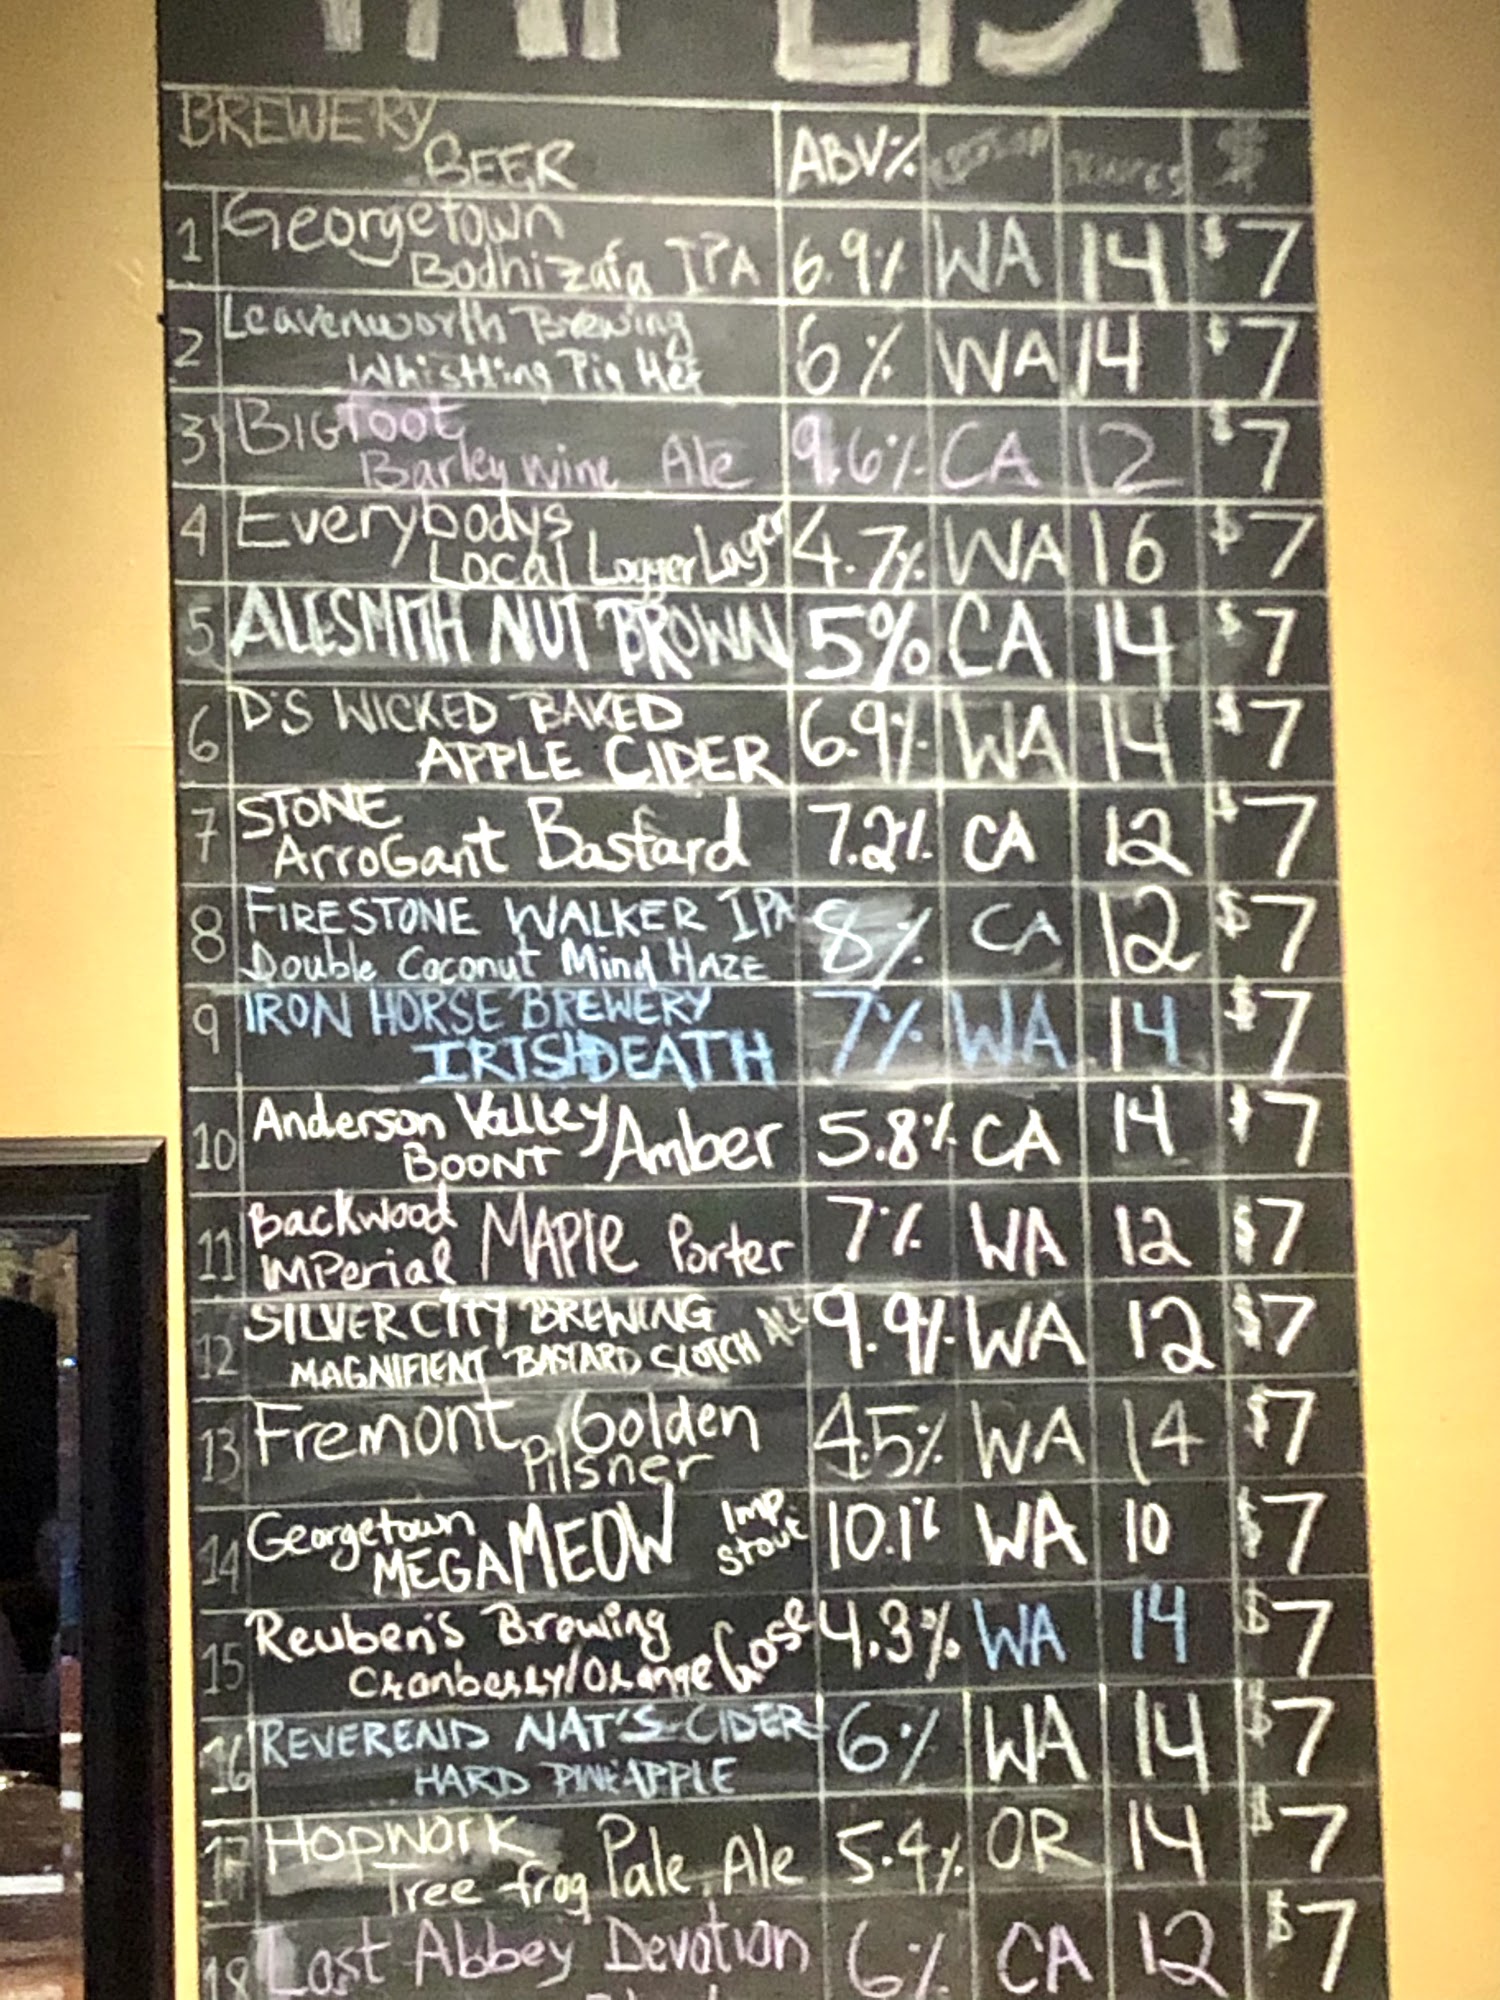 TAP LIST
BREWERY
BEER ABV% $
1 Georgetown
Bodhizafa IPA 6.9% WA 14 $7
2 Leavenworth Brewing
Whistling Pig Hef 6% WA 14 $7
3 Bigfoot
Barleywine Ale 9.6% CA 12 $7
4 Everybodys
Local Logger Lager 4.7% WA 16 $7
5 ALESMITH NUT BROWN 5% CA 14 $7
6 D'S WICKED BAKED
APPLE CIDER 6.9% WA 14 $7
7 STONE
ArroGant Bastard 7.2% CA 12 $7
8 FIRESTONE WALKER IPA
Double Coconut Mind HAZE 8% CA 12 $7
9 IRON HORSE BREWERY
IRISHDEATH 7% WA 14 $7
10 Anderson Valley
BOONT Amber 5.8% CA 14 $7
11 Backwood
IMPerial MAPlE Porter 7% WA 12 $7
12 SILVER CITY BREWING
MAGNIFIENT BASTARD SCOTCH ALE 9.9% WA 12 $7
13 Fremont Golden
Pilsner 4.5% WA 14 $7
14 Georgetown Imp.
MEGAMEOW Stout 10.1% WA 10 $7
15 Reuben's Brewing
Cranberry/Orange Gose 4.3% WA 14 $7
16 REVEREND NAT'S CIDER
HARD PINEAPPLE 6% WA 14 $7
17 HOPWORK
Tree frog Pale Ale 5.4% OR 14 $7
18 Lost Abbey Devotion 6% CA 12 $7